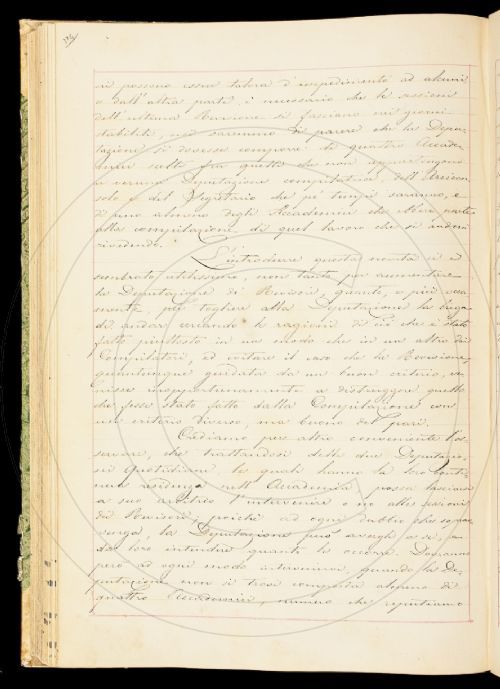 sii possono essere talora d'impedimento ad alcuni
e dall'altra parte, è necessario che le sessioni
dell'ultima Revisione si facciano nei giorni
stabiliti, noi saremmo di parere che la Depu-
tazione si dovesse comporre di quattro Accade-
mici scelti fra quelli che non appartengono
a veruna Deputazione compilatrice, dell'Arcicon-
solo e del Segretario che pe' tempi saranno, e
di uno almeno degli Accademici che ebbero parte
alla compilazione di quel lavoro che si anderà
rivedendo.
L'introdurre questa novità ci è
sembrato utilissimo, non tanto per aumentare
la Deputazione di Revisori, quanto, e più vera-
mente, per togliere alla Deputazione la briga
di andar cercando le ragioni di ciò che è stato
fatto piuttosto in un modo che in un altro dai
Compilatori, ed evitare il caso che la Revisione,
quantunque guidata da un buon criterio, ve-
nisse inopportunamente a distruggere quello
che fosse stato fatto dalla Compilazione con
un criterio diverso, ma buono del pari.
Crediamo però altro conveniente l'os-
servare, che trattandosi delle due Deputazio-
ni quotidiane le quali hanno la loro conti-
nua residenza nell'Accademia, possa lasciarsi
a suo arbitrio l'intervenire o no alle sessioni
di Revisori, poichè ad ogni dubbio che soprav-
venga, la Deputazione può averli a sè, e
da loro intendere quanto le occorre. Dovranno
però ad ogni modo intervenire, quando la De-
putazione non si trovi composta almeno di
quattro Accademici, numero che reputiamo